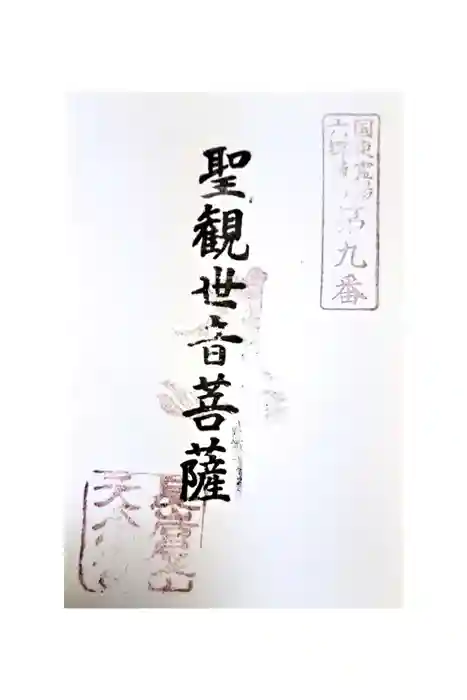 国東霊場
六郷
第九番
聖観世音菩薩
長岩屋山
天